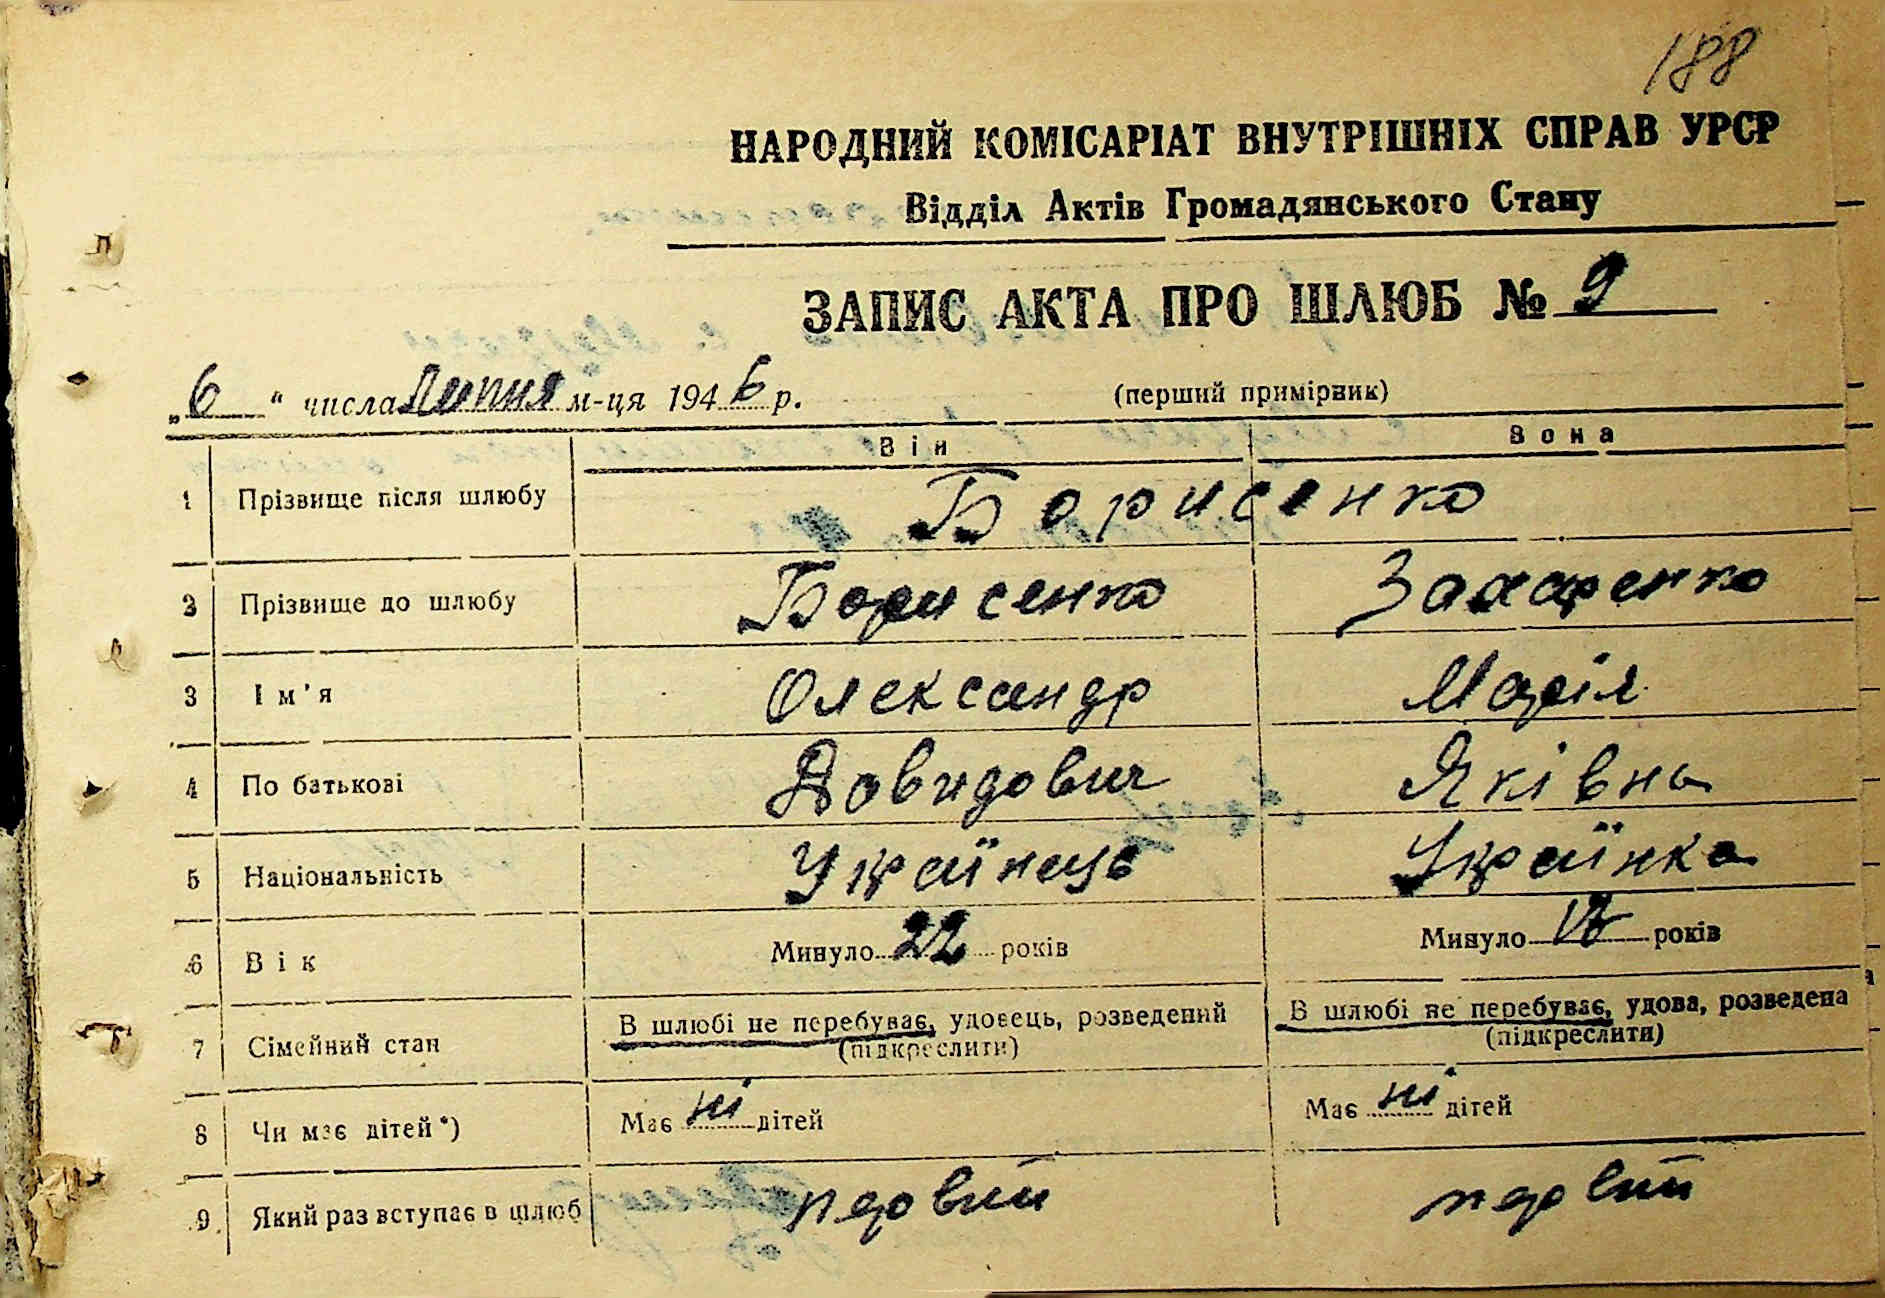 188
НАРОДНИЙ КОМІСАРІАТ ВНУТРІШНІХ СПРАВ УРСР
Відділ Актів Громадянського Стану
ЗАПИС АКТА ПРО ШЛЮБ № 9
„6“ числа Липня м-ця 1946 р. (перший примірник)
Він Вона
1 Прізвище після шлюбу Борисенко
2 Прізвище до шлюбу Борисенко Захаренко
3 Ім'я Олександр Марія
4 По батькові Довидович Яківна
5 Національність Українець Українка
6 Вік Минуло 22 років Минуло 18 років
7 Сімейний стан В шлюбі не перебуває, удовець, розведений В шлюбі не перебуває, удова, розведена
(підкреслити) (підкреслити)
8 Чи має дітей*) Має ні дітей Має ні дітей
9 Який раз вступає в шлюб первий первий